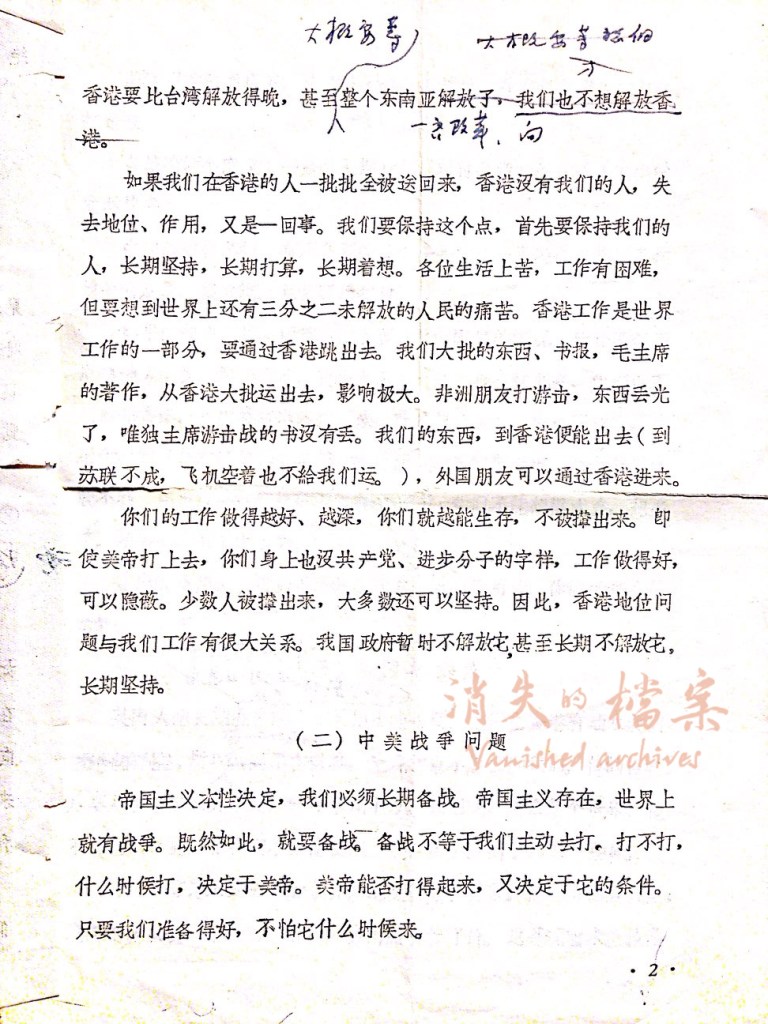 大概要等
大概要等
香港要比台湾解放得晚，甚至整个东南亚解放了，我们也不想解放香
港。
如果我们在香港的人一批批全被送回来，香港没有我们的人，失
去地位、作用，又是一回事。我们要保持这个点，首先要保持我们的
人，长期坚持，长期打算，长期着想。各位生活上苦，工作有困难，
但要想到世界上还有三分之二未解放的人民的痛苦。香港工作是世界
工作的一部分，要通过香港跳出去。我们大批的东西、书报，毛主席
的著作，从香港大批运出去，影响极大。非洲朋友打游击，东西丢光
了，唯独主席游击战的书没有丢。我们的东西，到香港便能出去（到
苏联不成，飞机空着也不给我们运。），外国朋友可以通过香港进来。
你们的工作做得越好、越深，你们就越能生存，不被撵出来。即
使美帝打上去，你们身上也没共产党、进步分子的字样，工作做得好，
可以隐蔽。少数人被撵出来，大多数还可以坚持。因此，香港地位问
题与我们工作有很大关系。我国政府暂时不解放它，甚至长期不解放它，
长期坚持。
消失的檔案
Vanished archives
（二）中美战争问题
帝国主义本性决定，我们必须长期备战。帝国主义存在，世界上
就有战争。既然如此，就要备战。备战不等于我们主动去打。打不打，
什么时侯打，决定于美帝。美帝能否打得起来，又决定于它的条件。
只要我们准备得好，不怕它什么时候来。
·2·